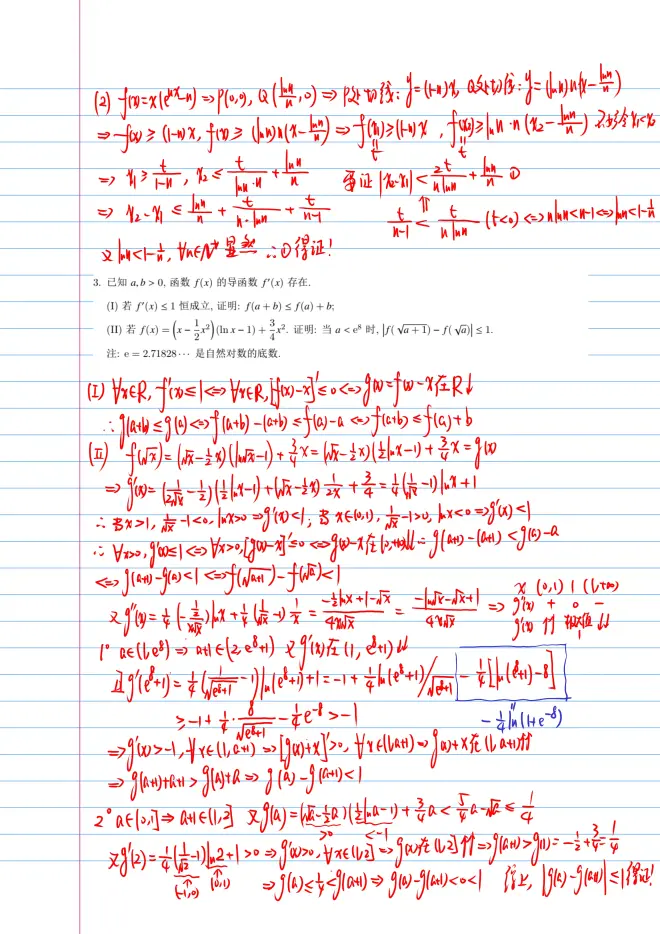 (2) f(x)=x(e^{nx}-n) ⇒ P(0,0), Q(\frac{\ln n}{n},0) ⇒ P处切线: y=(1-n)x, Q处切线: y=(\ln n)n(x-\frac{\ln n}{n})
⇒ f(x)≥(1-n)x, f(x)≥(\ln n)n(x-\frac{\ln n}{n}) ⇒ f(x_1)≥(1-n)x_1, f(x_2)≥\ln n·n(x_2-\frac{\ln n}{n}) 不妨令x_1<x_2
⇒ x_1≥\frac{t}{1-n}, x_2≤\frac{t}{\ln n·n}+\frac{\ln n}{n} 要证|x_2-x_1|<\frac{2t}{n\ln n}+\frac{\ln n}{n} ①
⇒ x_2-x_1≤\frac{\ln n}{n}+\frac{t}{n·\ln n}+\frac{t}{n-1} ⇑ \frac{t}{n-1}<\frac{t}{n\ln n} (t<0) ⇔ n\ln n<n-1 ⇔ \ln n<1-\frac{1}{n}
又\ln n<1-\frac{1}{n}, ∀n∈N^* 显然 ∴①得证!
3. 已知 a, b > 0, 函数 f(x) 的导函数 f′(x) 存在.
(I) 若 f′(x) ≤ 1 恒成立, 证明: f(a + b) ≤ f(a) + b;
(II) 若 f(x) = (x - \frac{1}{2}x^2)(ln x - 1) + \frac{3}{4}x^2. 证明: 当 a < e^8 时, |f(\sqrt{a+1}) - f(\sqrt{a})| ≤ 1.
注: e = 2.71828··· 是自然对数的底数.
(I) ∀x∈R, f'(x)≤1 ⇔ ∀x∈R, [f(x)-x]'≤0 ⇔ g(x)=f(x)-x在R↓
∴ g(a+b)≤g(a) ⇔ f(a+b)-(a+b)≤f(a)-a ⇔ f(a+b)≤f(a)+b
(II) f(\sqrt{x})=(\sqrt{x}-\frac{1}{2}x)(\ln\sqrt{x}-1)+\frac{3}{4}x=(\sqrt{x}-\frac{1}{2}x)(\frac{1}{2}\ln x-1)+\frac{3}{4}x=g(x)
⇒ g'(x)=(\frac{1}{2\sqrt{x}}-\frac{1}{2})(\frac{1}{2}\ln x-1)+(\sqrt{x}-\frac{1}{2}x)\frac{1}{2x}+\frac{3}{4}=\frac{1}{4}(\frac{1}{\sqrt{x}}-1)\ln x+1
∴ 当x>1, \frac{1}{\sqrt{x}}-1<0, \ln x>0 ⇒ g'(x)<1; 当x∈(0,1), \frac{1}{\sqrt{x}}-1>0, \ln x<0 ⇒ g'(x)<1
∴ ∀x>0, g'(x)≤1 ⇔ ∀x>0, [g(x)-x]'≤0 ⇔ g(x)-x在(0,+∞)↓↓ ∴ g(a+1)-(a+1)<g(a)-a
⇔ g(a+1)-g(a)<1 ⇔ f(\sqrt{a+1})-f(\sqrt{a})<1
又g''(x)=\frac{1}{4}(-\frac{\frac{1}{2}}{x\sqrt{x}})\ln x+\frac{1}{4}(\frac{1}{\sqrt{x}}-1)\frac{1}{x}=\frac{-\frac{1}{2}\ln x+1-\sqrt{x}}{4x\sqrt{x}}=\frac{-\ln\sqrt{x}-\sqrt{x}+1}{4x\sqrt{x}} ⇒
x (0,1) 1 (1,+∞)
g''(x) + 0 -
g'(x) ↑↑ 极大值 ↓↓
1° a∈(1,e^8) ⇒ a+1∈(2,e^8+1) 又g'(x)在(1,e^8+1)↓↓
且g'(e^8+1)=\frac{1}{4}(\frac{1}{\sqrt{e^8+1}}-1)\ln(e^8+1)+1=-1+\frac{1}{4}\ln(e^8+1)/\sqrt{e^8+1}-\frac{1}{4}[\ln(e^8+1)-8]
≥-1+\frac{1}{4}·\frac{8}{\sqrt{e^8+1}}-\frac{1}{4}e^{-8}>-1
-\frac{1}{4}\ln(1+e^{-8})
⇒ g'(x)>-1, ∀x∈(1,a+1) ⇒ [g(x)+x]'>0, ∀x∈(1,a+1) ⇒ g(x)+x在(1,a+1)↑↑
⇒ g(a+1)+a+1>g(a)+a ⇒ g(a)-g(a+1)<1
2° a∈(0,1] ⇒ a+1∈(1,2] 又g(a)=(\sqrt{a}-\frac{1}{2}a)(\frac{1}{2}\ln a-1)+\frac{3}{4}a<\frac{5}{4}a-\sqrt{a}≤\frac{1}{4}
>0 <-1
又g'(2)=\frac{1}{4}(\frac{1}{\sqrt{2}}-1)\ln 2+1>0 ⇒ g'(x)>0, ∀x∈(1,2] ⇒ g(x)在(1,2]↑↑ ⇒ g(a+1)>g(1)=-\frac{1}{2}+\frac{3}{4}=\frac{1}{4}
(-1,0) (0,1) ⇒ g(a)≤\frac{1}{4}<g(a+1) ⇒ g(a)-g(a+1)<0<1 综上, |g(a)-g(a+1)|≤1得证!